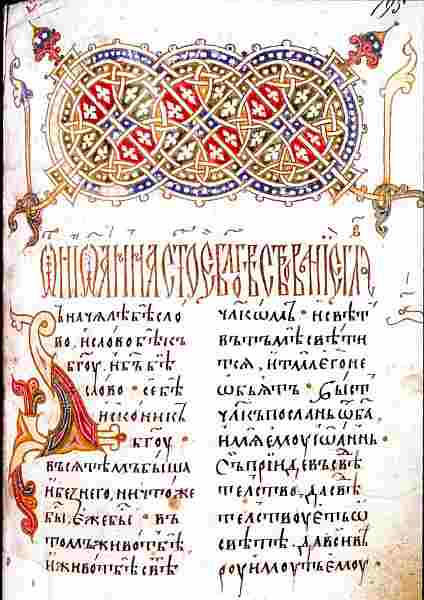 195
ѿ іѡанна стое блговѣствованїе
Въначалѣбѣсло
во, ислово бѣкъ
бгоу, ибъбѣ
слово · себѣ
исконикъ
бгоу ·
въсѧтѣмъбыша
ибезнего, ничтоже
бы, ежебы · въ
томьживотъбѣ
иживотьбѣсвѣ
члкѡмъ · исвѣт
вътъмѣсвѣти
тсѧ, итмаегоне
ѡбьѧтъ · быст
члкъпосланьѿба
имѧемоуіѡаннь ·
Съпрїидевъсвѣ
телство, дасвѣ
телствоуетьѡ
свѣтѣ, давсивѣ
роуимоутьемоу